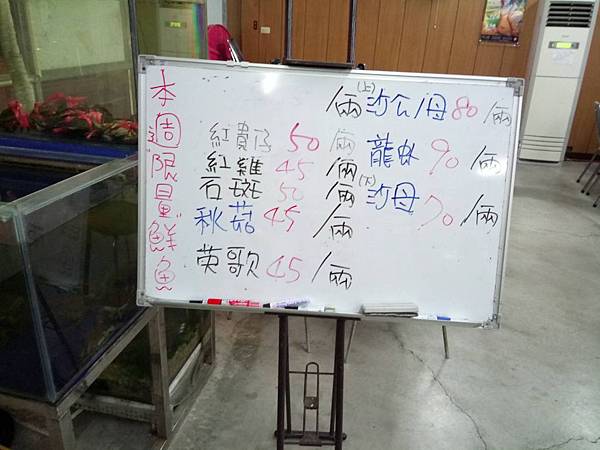 本週限量鮮魚
/兩
紅貴仔 50 /兩
紅雞 45 /兩
石斑 50 /兩
秋菇 45 /兩
英歌 45 /兩
(上)沙公/母 80 /兩
龍虾 90 /兩
(下)沙母 70 /兩